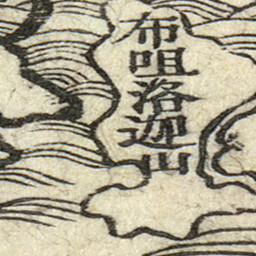 布咀洛迦山